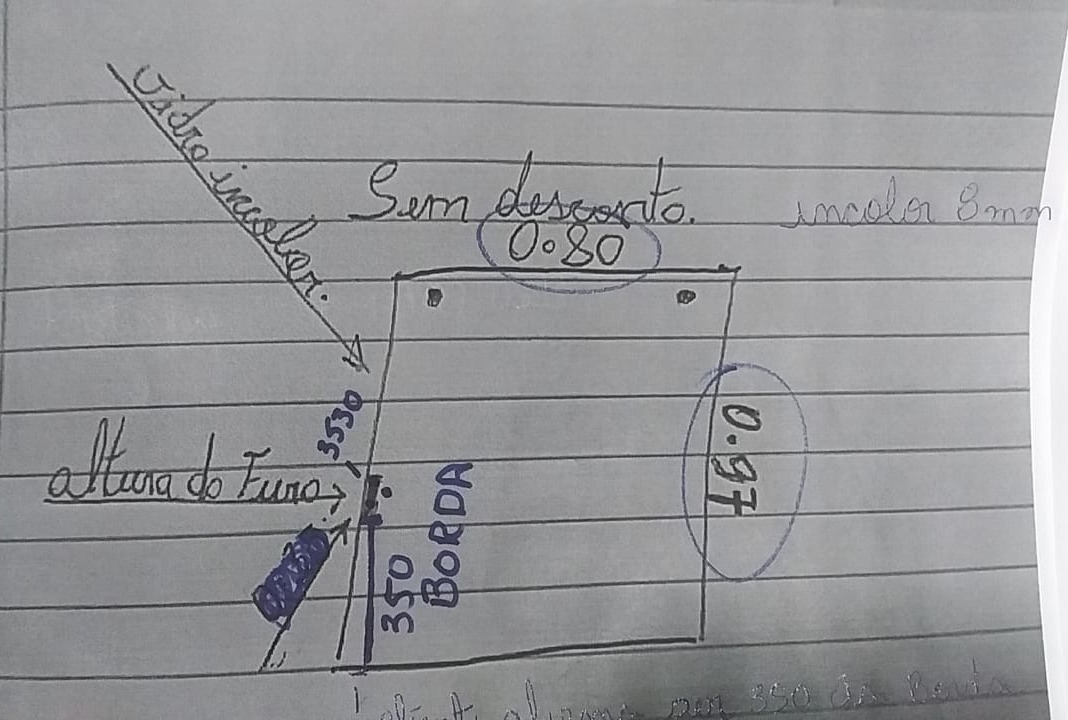 Vidro incolor.
Sem desconto.
incolor 8mm
0.80
3530
altura do Furo
0.97
350
BORDA
350 da Borda